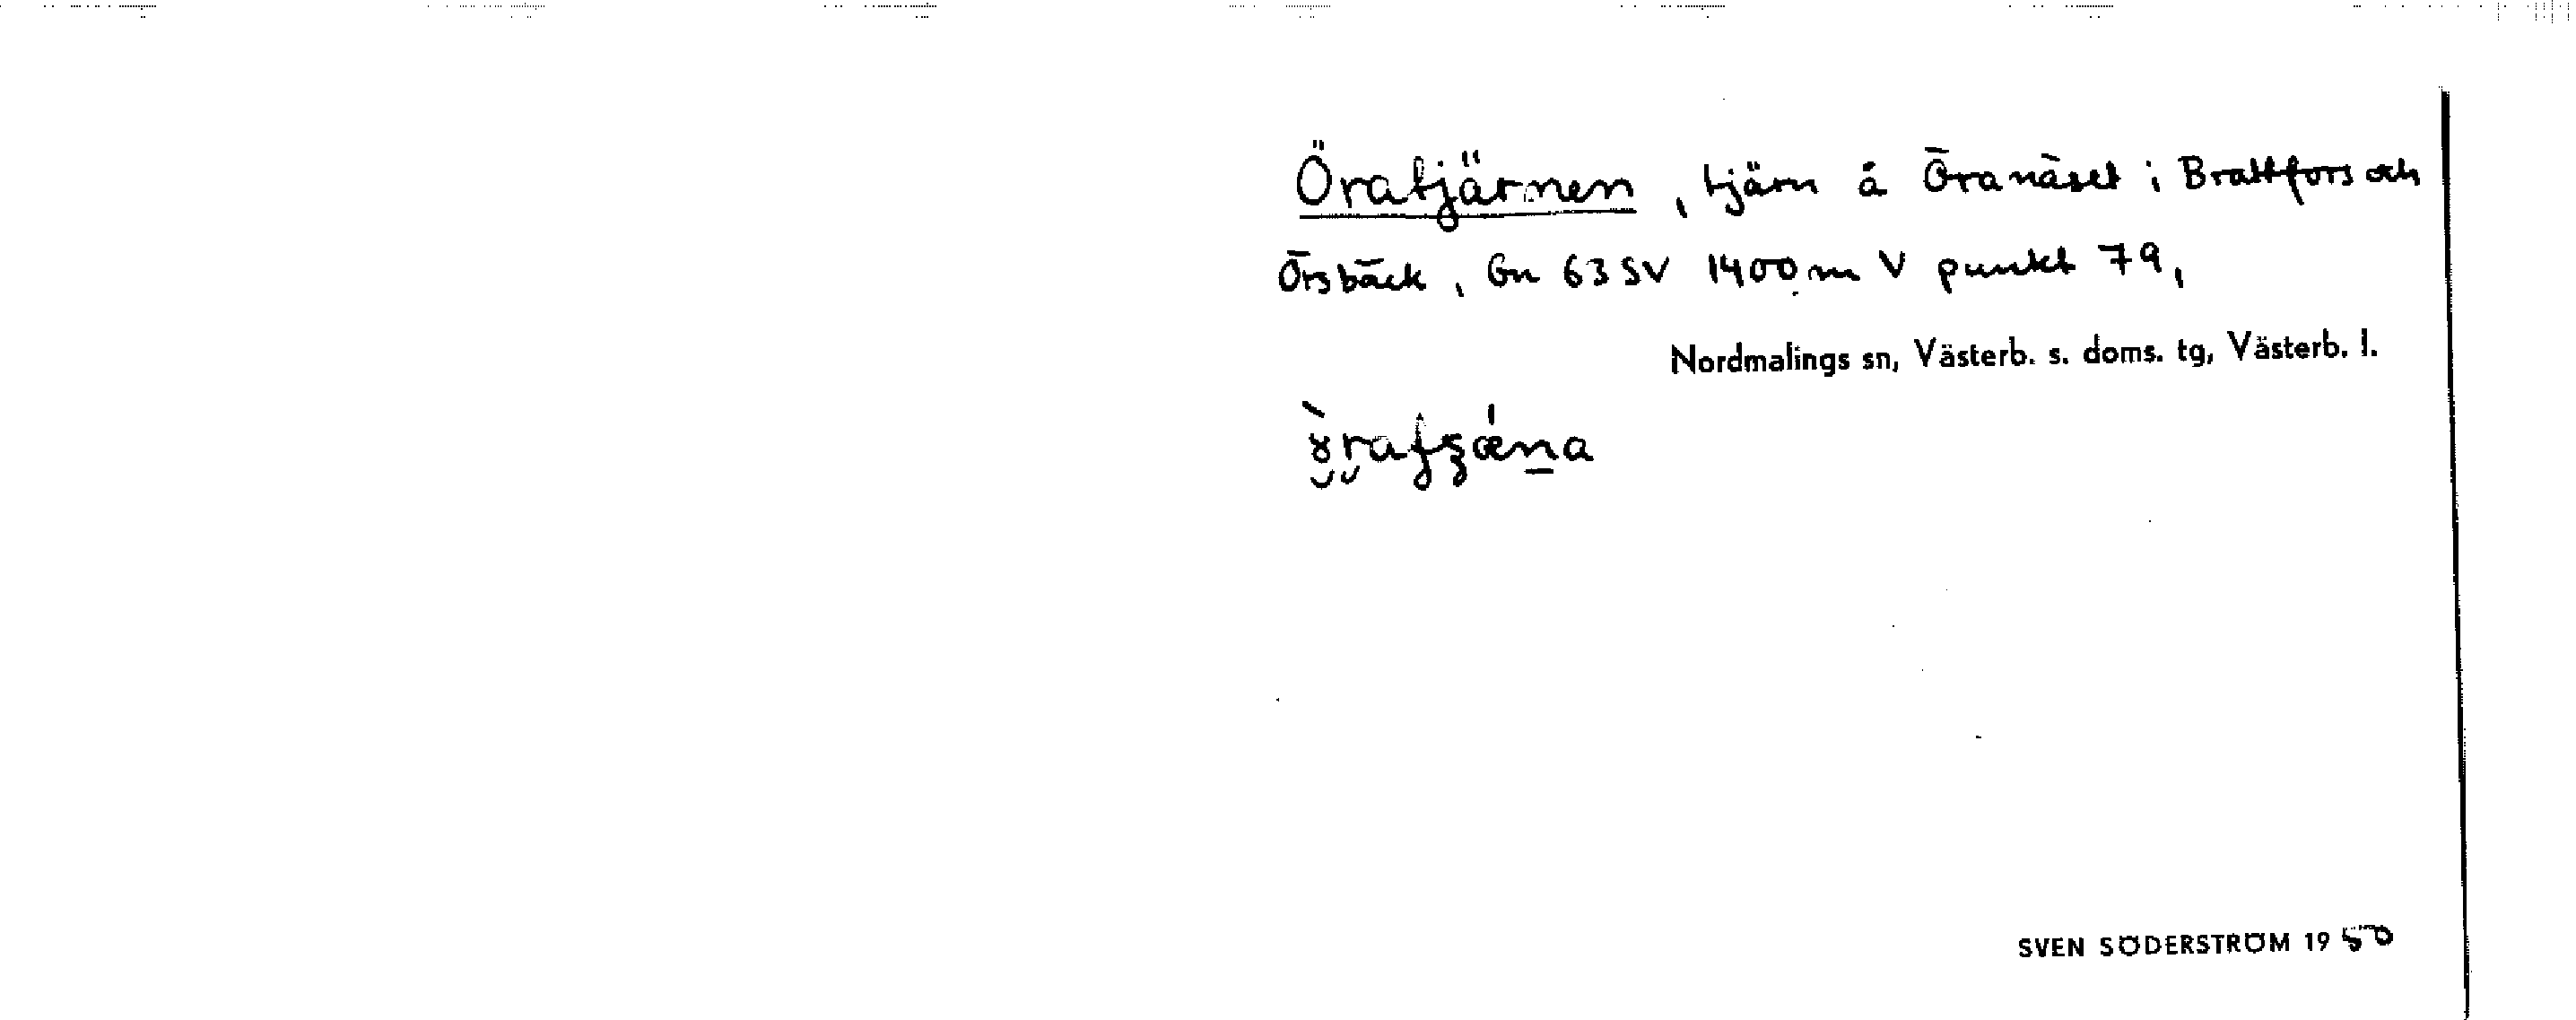 Öratjärnen, tjärn å Öranäset i Brattfors och
Örsbäck, Gn 63 SV 1400 m V punkt 79,
Nordmalings sn, Västerb. s. doms. tg, Västerb. l.
SVEN SÖDERSTRÖM 1950